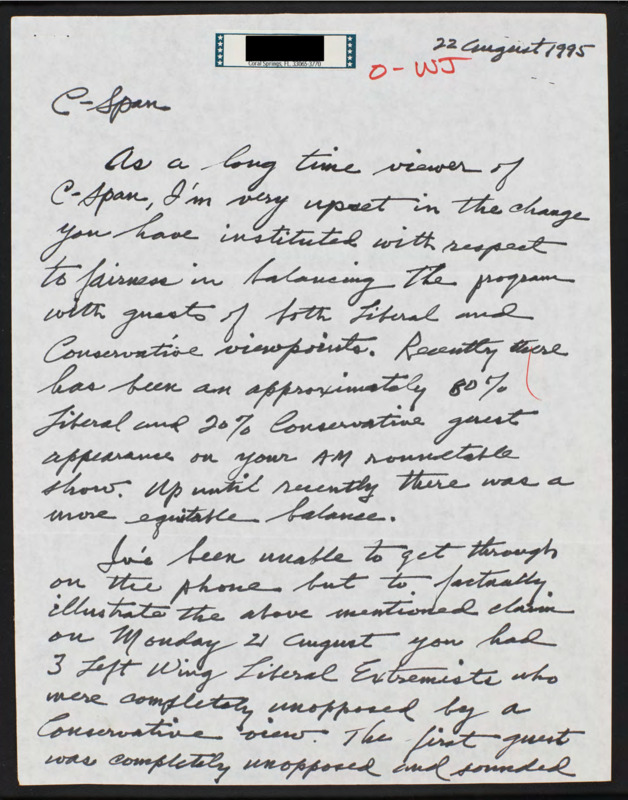 Coral Springs, FL 33065-3770
22 August 1995
O-WJ
C-Span
As a long time viewer of
C-Span, I'm very upset in the change
you have instituted with respect
to fairness in balancing the program
with guests of both Liberal and
Conservative viewpoints. Recently there
has been an approximately 80%
Liberal and 20% Conservative guest
appearance on your AM roundtable
show. Up until recently there was a
more equitable balance.
I've been unable to get through
on the phone but to factually
illustrate the above mentioned claim
on Monday 21 August you had
3 Left Wing Liberal Extremists who
were completely unopposed by a
Conservative view. The first guest
was completely unopposed and sounded